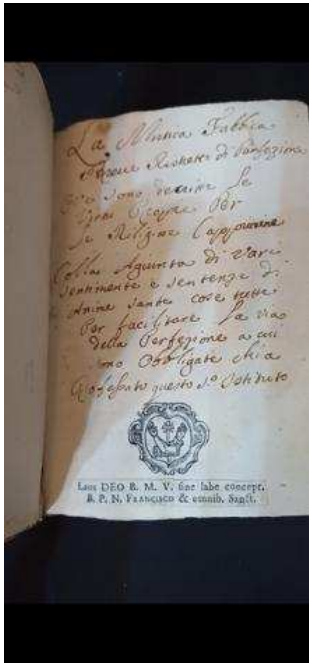 La Mistica Fabbica
di
Ove Sono descritte Le
Per
Le Religiose Cappuccine
Colla Agiunta di Vari
Sentimente e Sentenze di
Anime Sante cose tutte
Per facilitare La via
della Perfezione a cui
sono Obbligate chi a
Professato questo Sº Istituto
Laus DEO B. M. V. sine labe concept.
B. P. N. FRANCISCO & omnib. Sanct.